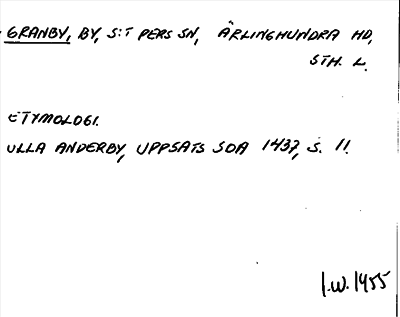 GRANBY, BY, S:T PERS SN, ÄRLINGHUNDRA HD,
STH. L.
ETYMOLOGI.
ULLA ANDERBY, UPPSATS SOA 1437, S. 11.
I.W. 1955